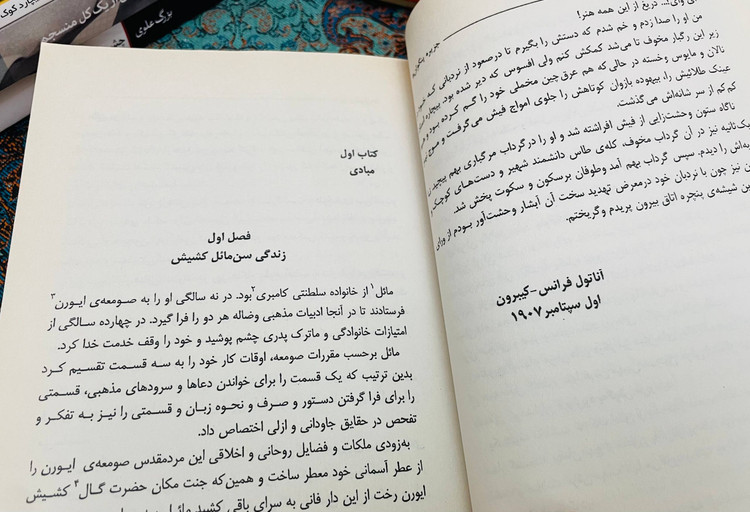 بزرگ علوی
ای وای!... دریغ از این همه هنر!
من او را صدا زدم و خم شدم که دستش را بگیرم تا درصعود از نردبانی که
زیر این رگبار مخوف تا می‌شد کمکش کنم ولی افسوس که دیر شده بود. بیچاره
نالان و مایوس وخسته در حالی که هم عرق‌چین مخملی خود را گم کرده بود و هم
عینک طلائیش را، بیهوده بازوان کوتاهش را جلوی امواج فیش می‌گرفت و
کم‌کم از سر شانه‌اش می‌گذشت.
ناگاه ستون وحشت‌زایی از فیش افراشته شد و او را درگرداب مرگباری بهم پیچید.
یک‌ثانیه نیز در آن گرداب مخوف، کله‌ی طاس دانشمند شهیر و دست‌های کوچک و
را دیدم. سپس گرداب بهم آمد وطوفان برسکون و سکوت پخش شد.
نیز چون با نردبان خود درمعرض تهدید سخت آن آبشار وحشت‌آور بودم از ورای
شیشه‌ی پنجره اتاق بیرون پریدم وگریختم.
آناتول فرانس -کیبرون
اول سپتامبر ۱۹۰۷
کتاب اول
مبادی
فصل اول
زندگی سن‌مائل کشیش
مائل۱ از خانواده سلطنتی کامبری۲بود. در نه سالگی او را به صومعه‌ی ایورن۳
فرستادند تا در آنجا ادبیات مذهبی وضاله هر دو را فرا گیرد. در چهارده سالگی از
امتیازات خانوادگی و ماترک پدری چشم پوشید و خود را وقف خدمت خدا کرد.
مائل برحسب مقررات صومعه، اوقات کار خود را به سه قسمت تقسیم کرد
بدین ترتیب که یک قسمت را برای خواندن دعاها و سرودهای مذهبی، قسمتی
را برای فرا گرفتن دستور و صرف و نحوه زبان و قسمتی را نیز به تفکر و
تفحص در حقایق جاودانی و ازلی اختصاص داد.
به‌زودی ملکات و فضایل روحانی و اخلاقی این مردمقدس صومعه‌ی ایورن را
از عطر آسمانی خود معطر ساخت و همین‌که جنت مکان حضرت گال۴ کشیش
ایورن رخت از این دار فانی به سرای باقی کشید مائل